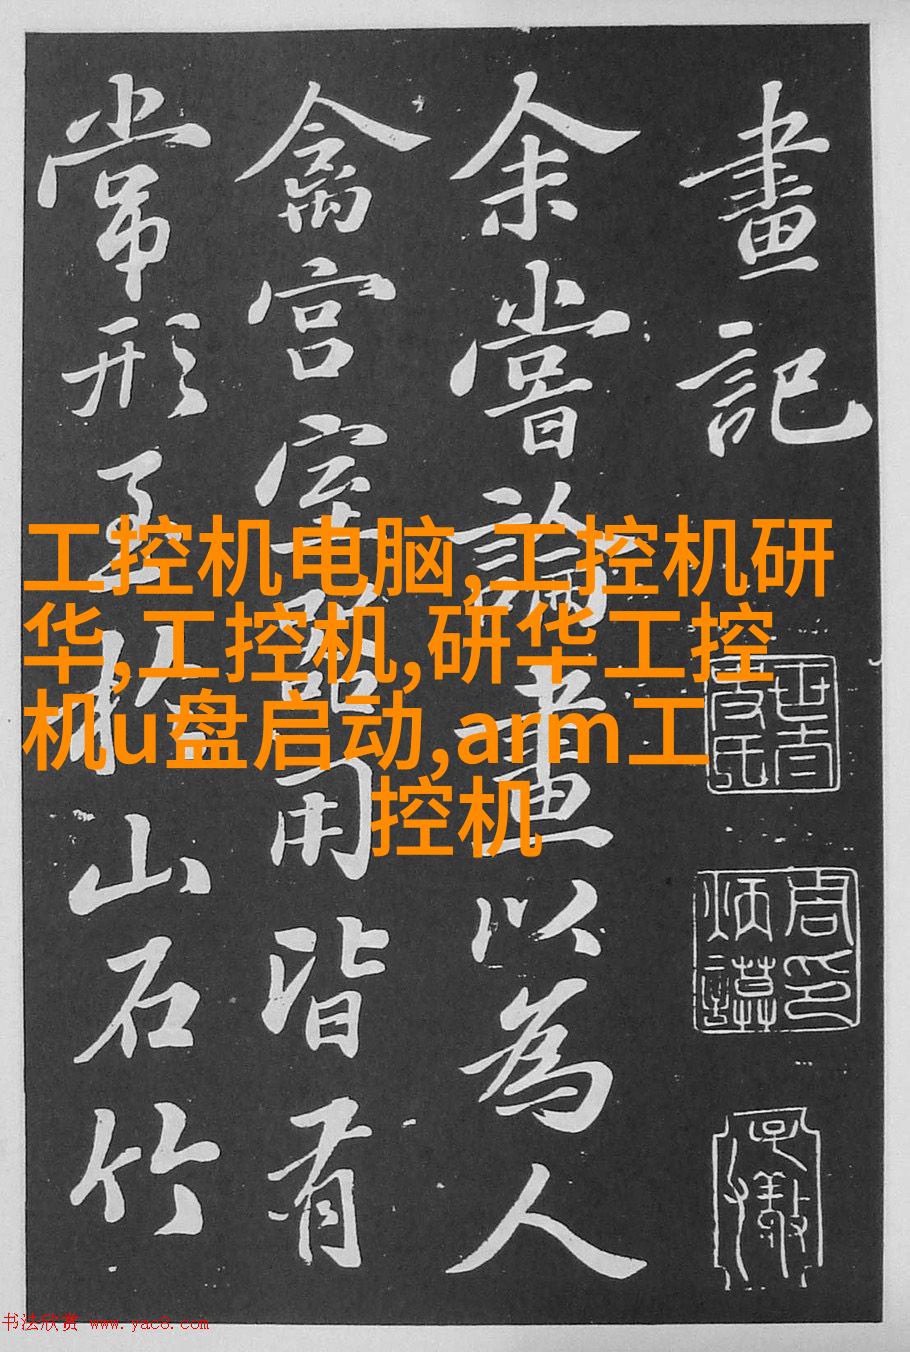 畫記
余嘗論畫以為人
禽宮室器用皆有
常形至於山石竹
周印
炳謨
工控机电脑,工控机研
华,工控机,研华工控
机u盘启动,arm工
控机
书法欣赏 www.yac8.com